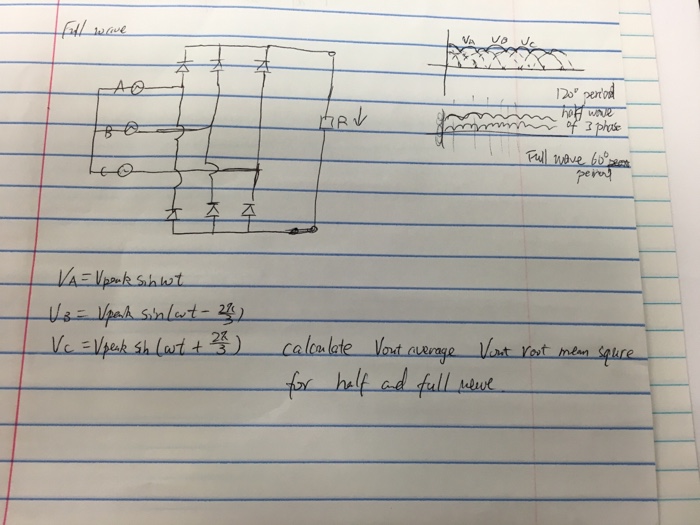 Full wave
A
B
C
R
VA VB VC
120° period
half wave
of 3 phase
Full wave 60°
period
VA = Vpeak sin wt
VB = Vpeak sin (wt - 2π/3)
VC = Vpeak sin (wt + 2π/3)
calculate Vout average Vout root mean squre
for half and full wave.